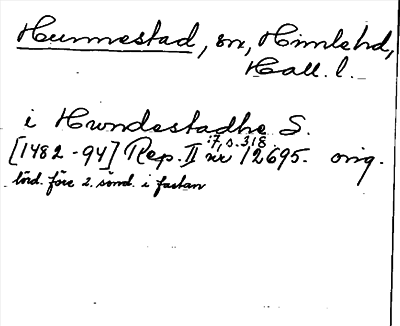 Hunnestad, sn, Himlehd,
Hall. l.
i Hwndestadhe S.
:7, s. 318
[1482-94] Rep. II nr 12695. orig.
lörd. före 2. sönd. i fastan